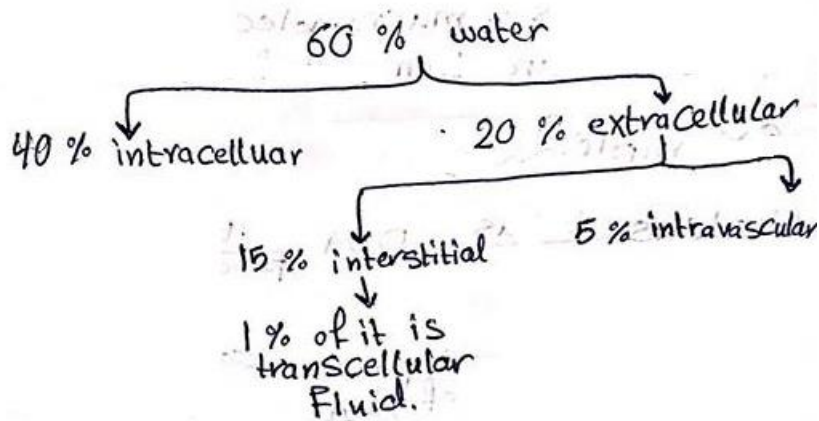 60 % water
40 % intracelluar
20 % extracellular
15 % interstitial
5 % intravascular
1 % of it is
transcellular
Fluid.